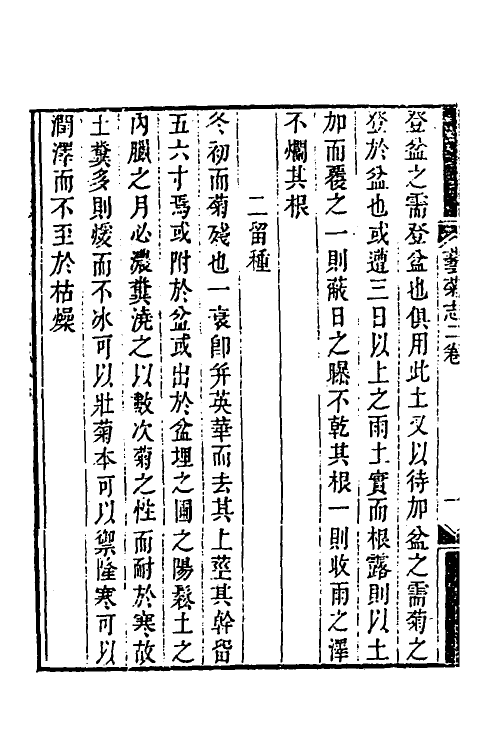 藝菊志二卷
一
登盆之需登盆也俱用此土又以待加盆之需菊之
登於盆也或遭三日以上之雨土實而根露則以土
加而覆之一則蔽日之曝不乾其根一則收雨之澤
不爛其根
二留種
冬初而菊殘也一衰卽并英華而去其上莖其幹留
五六寸焉或附於盆或出於盆埋之圃之陽鬆土之
內臘之月必濃糞澆之以數次菊之性而耐於寒故
土糞多則煖而不冰可以壯菊本可以禦隆寒可以
潤澤而不至於枯燥